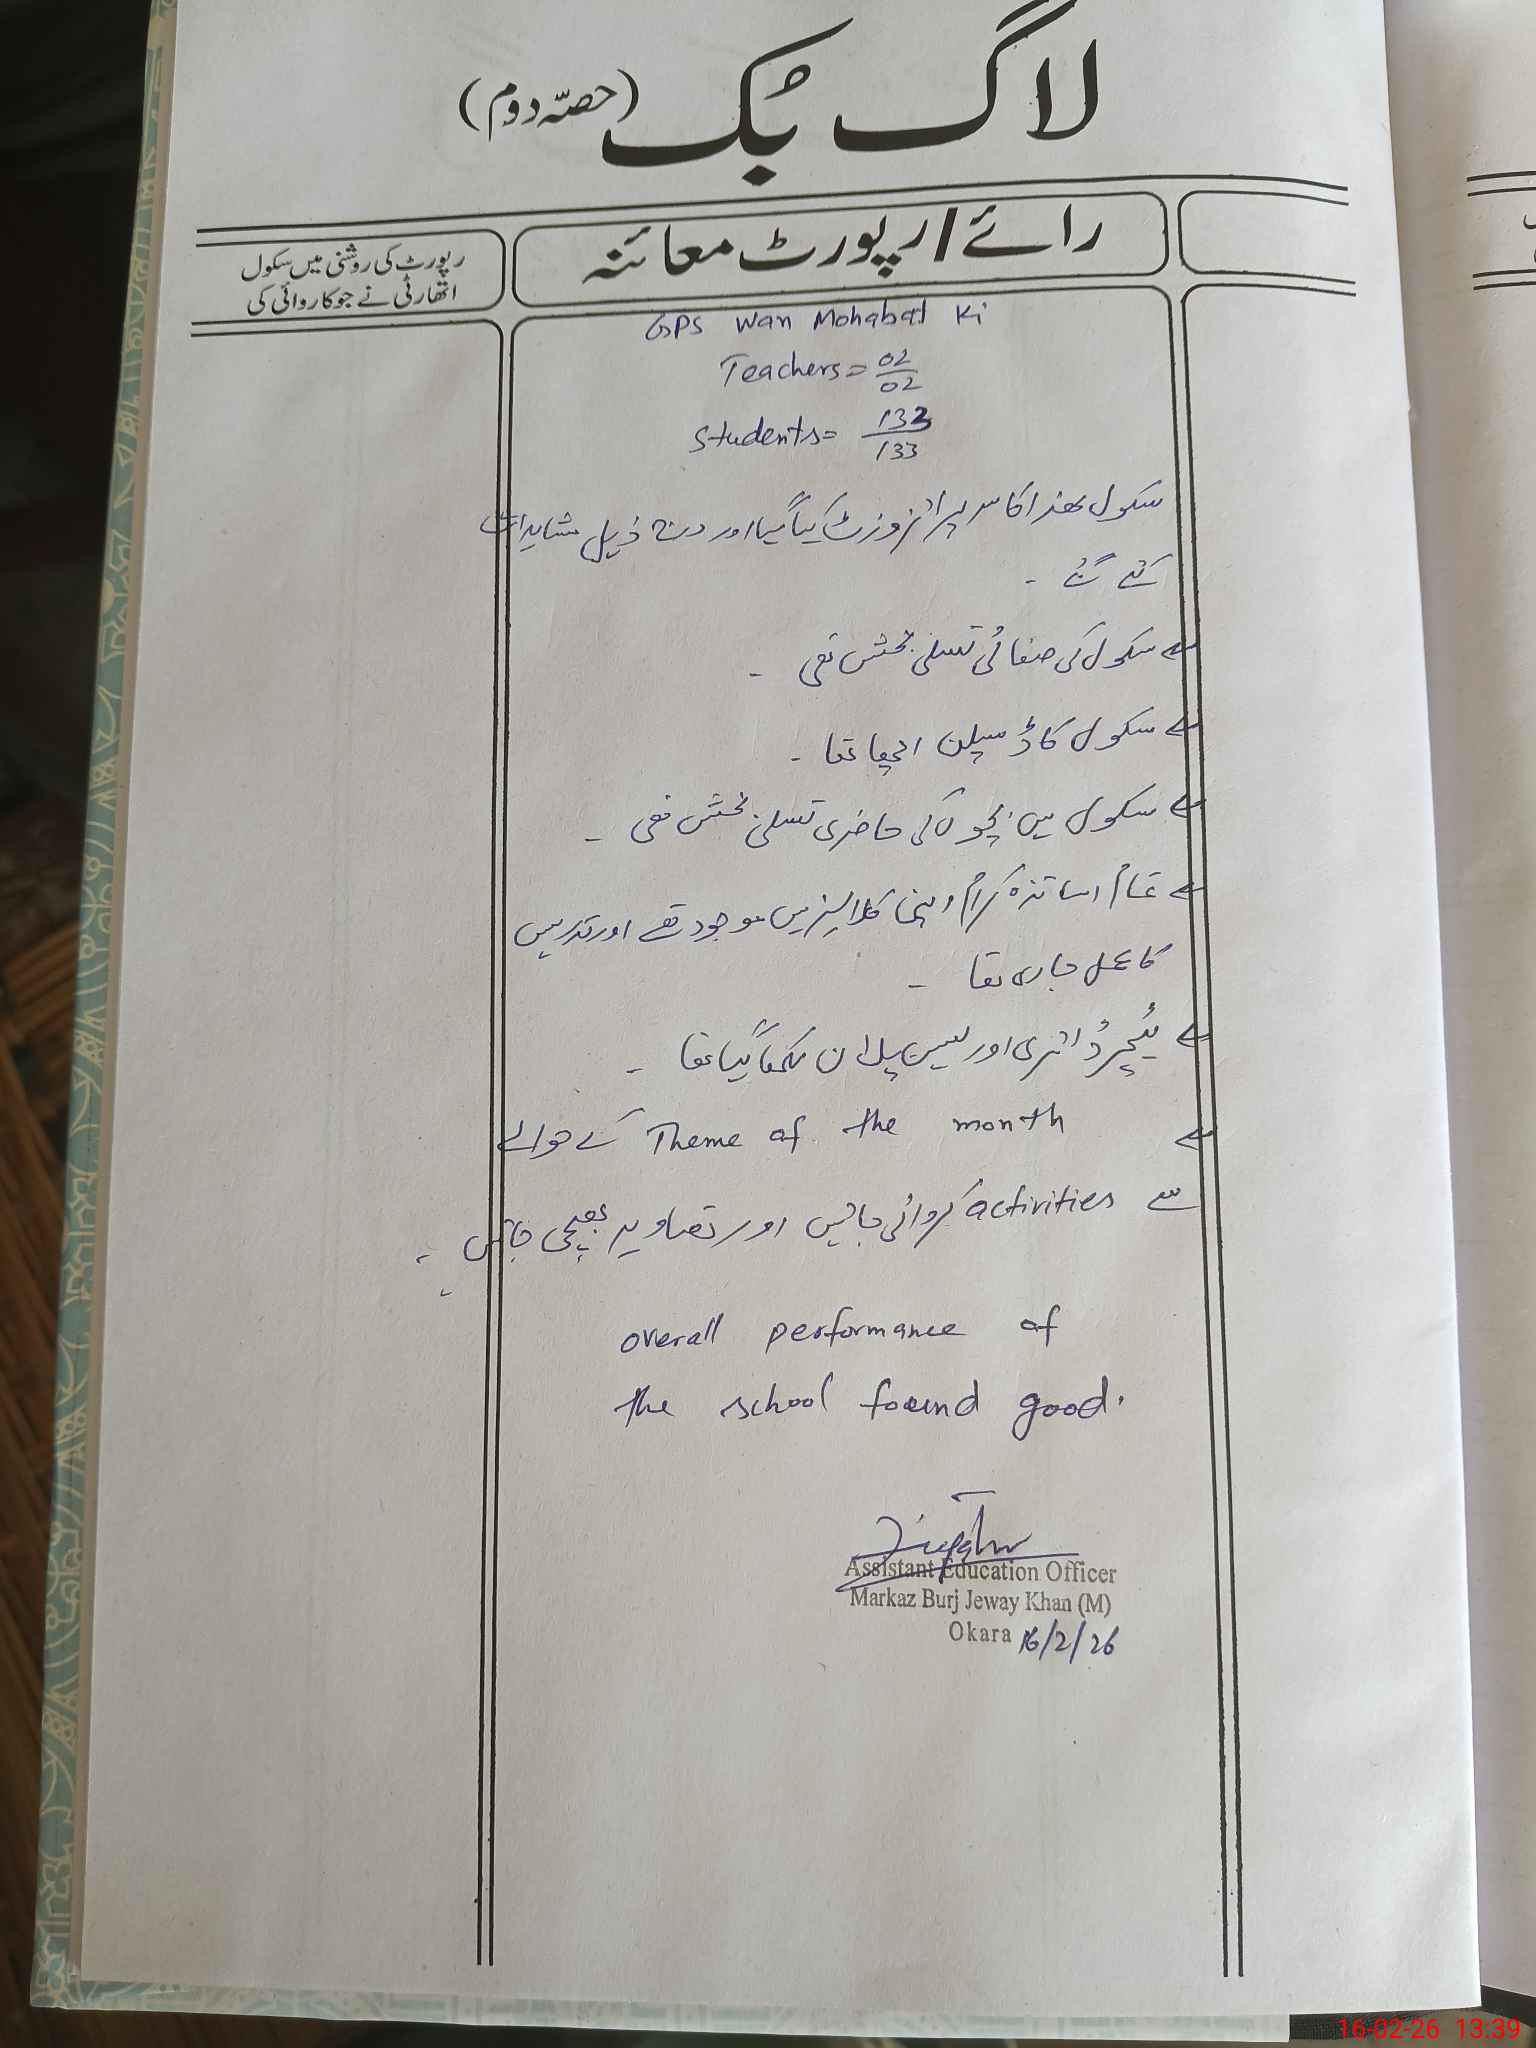 لاگ بُک (حصّہ دوم)
رائے/رپورٹ معائنہ
رپورٹ کی روشنی میں سکول
اتھارٹی نے جو کاروائی کی
GPS Wan Mohabat Ki
Teachers = 02/02
Students = 133/133
سکول ھذا کا سرپرائز وزٹ کیا گیا اور درج ذیل مشاہدات
کئے گئے ۔
سکول کی صفائی تسلی بخش تھی ۔
سکول کا ڈسپلن اچھا تھا ۔
سکول میں بچوں کی حاضری تسلی بخش تھی ۔
تمام اساتذہ کرام اپنی کلاسز میں موجود تھے اور تدریس
کا عمل جاری تھا ۔
ٹیچر ڈائری اور لیسن پلان لکھا گیا تھا ۔
Theme of the month کے حوالے
سے activities کروائی جائیں اور تصاویر بھیجی جائیں ۔
overall performance of
the school found good.
Assistant Education Officer
Markaz Burj Jeway Khan (M)
Okara 16/2/26
16-02-26 13:39